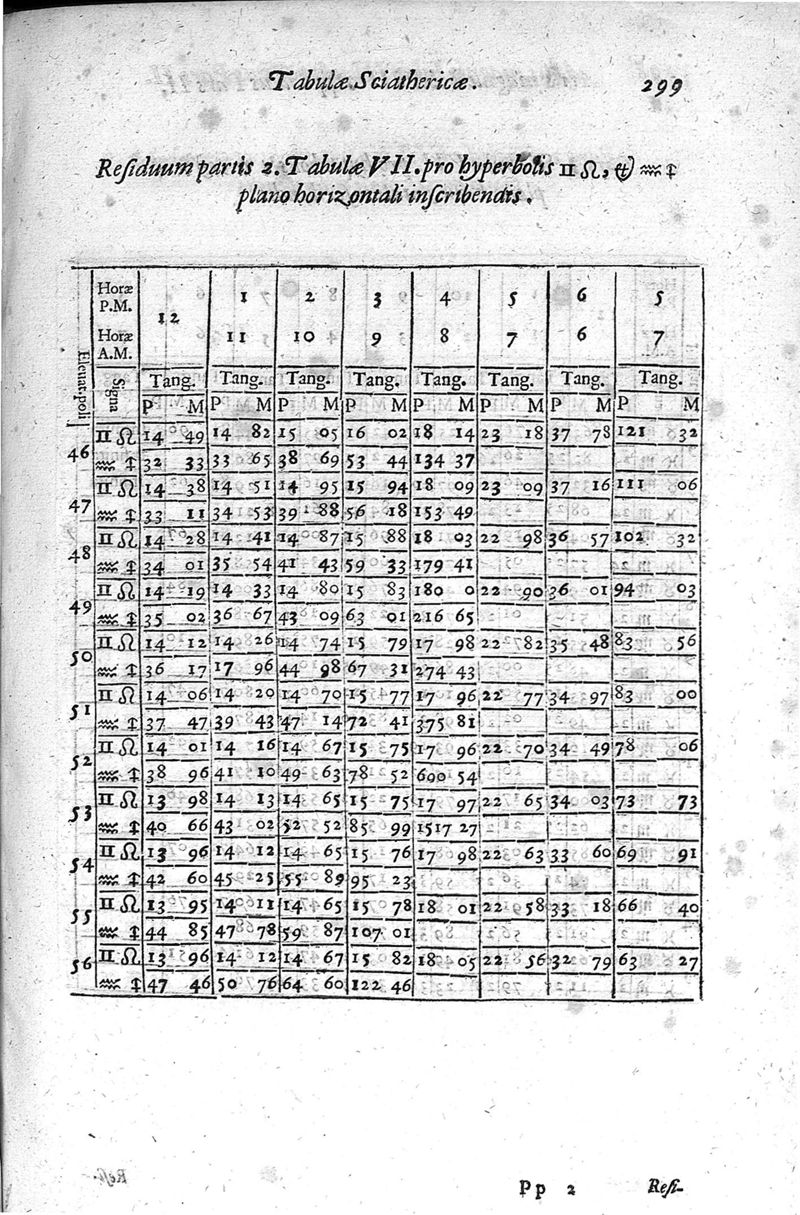 Tabulæ Sciathericæ. 299
Reſiduum partis 2. Tabulæ VII. pro hyperbolis ♊ ♌, & ♒ ♐
plano horizontali inſcribendis.
Horæ P.M. 12 1 2 3 4 5 6 5
Horæ A.M. 11 10 9 8 7 6 7
Eleuat. poli Signa Tang. Tang. Tang. Tang. Tang. Tang. Tang. Tang.
P M P M P M P M P M P M P M P M
46 ♊ ♌ 14 49 14 82 15 05 16 02 18 14 23 18 37 78 121 32
♒ ♐ 32 33 33 65 38 69 53 44 134 37
47 ♊ ♌ 14 38 14 51 14 95 15 94 18 09 23 09 37 16 111 06
♒ ♐ 33 11 34 53 39 88 56 18 153 49
48 ♊ ♌ 14 28 14 41 14 87 15 88 18 03 22 98 36 57 102 32
♒ ♐ 34 01 35 54 41 43 59 33 179 41
49 ♊ ♌ 14 19 14 33 14 80 15 83 180 0 22 90 36 01 94 03
♒ ♐ 35 02 36 67 43 09 63 01 216 65
50 ♊ ♌ 14 12 14 26 14 74 15 79 17 98 22 82 35 48 83 56
♒ ♐ 36 17 17 96 44 98 67 31 274 43
51 ♊ ♌ 14 06 14 20 14 70 15 77 17 96 22 77 34 97 83 00
♒ ♐ 37 47 39 43 47 14 72 41 375 81
52 ♊ ♌ 14 01 14 16 14 67 15 75 17 96 22 70 34 49 78 06
♒ ♐ 38 96 41 10 49 63 78 52 690 54
53 ♊ ♌ 13 98 14 13 14 65 15 75 17 97 22 65 34 03 73 73
♒ ♐ 40 66 43 02 52 52 85 99 1517 27
54 ♊ ♌ 13 96 14 12 14 65 15 76 17 98 22 63 33 60 69 91
♒ ♐ 42 60 45 25 55 89 95 23
55 ♊ ♌ 13 95 14 11 14 65 15 78 18 01 22 58 33 18 66 40
♒ ♐ 44 85 47 78 59 87 107 01
56 ♊ ♌ 13 96 14 12 14 67 15 82 18 05 22 56 32 79 63 27
♒ ♐ 47 46 50 76 64 60 122 46
Pp 2 Reſi-